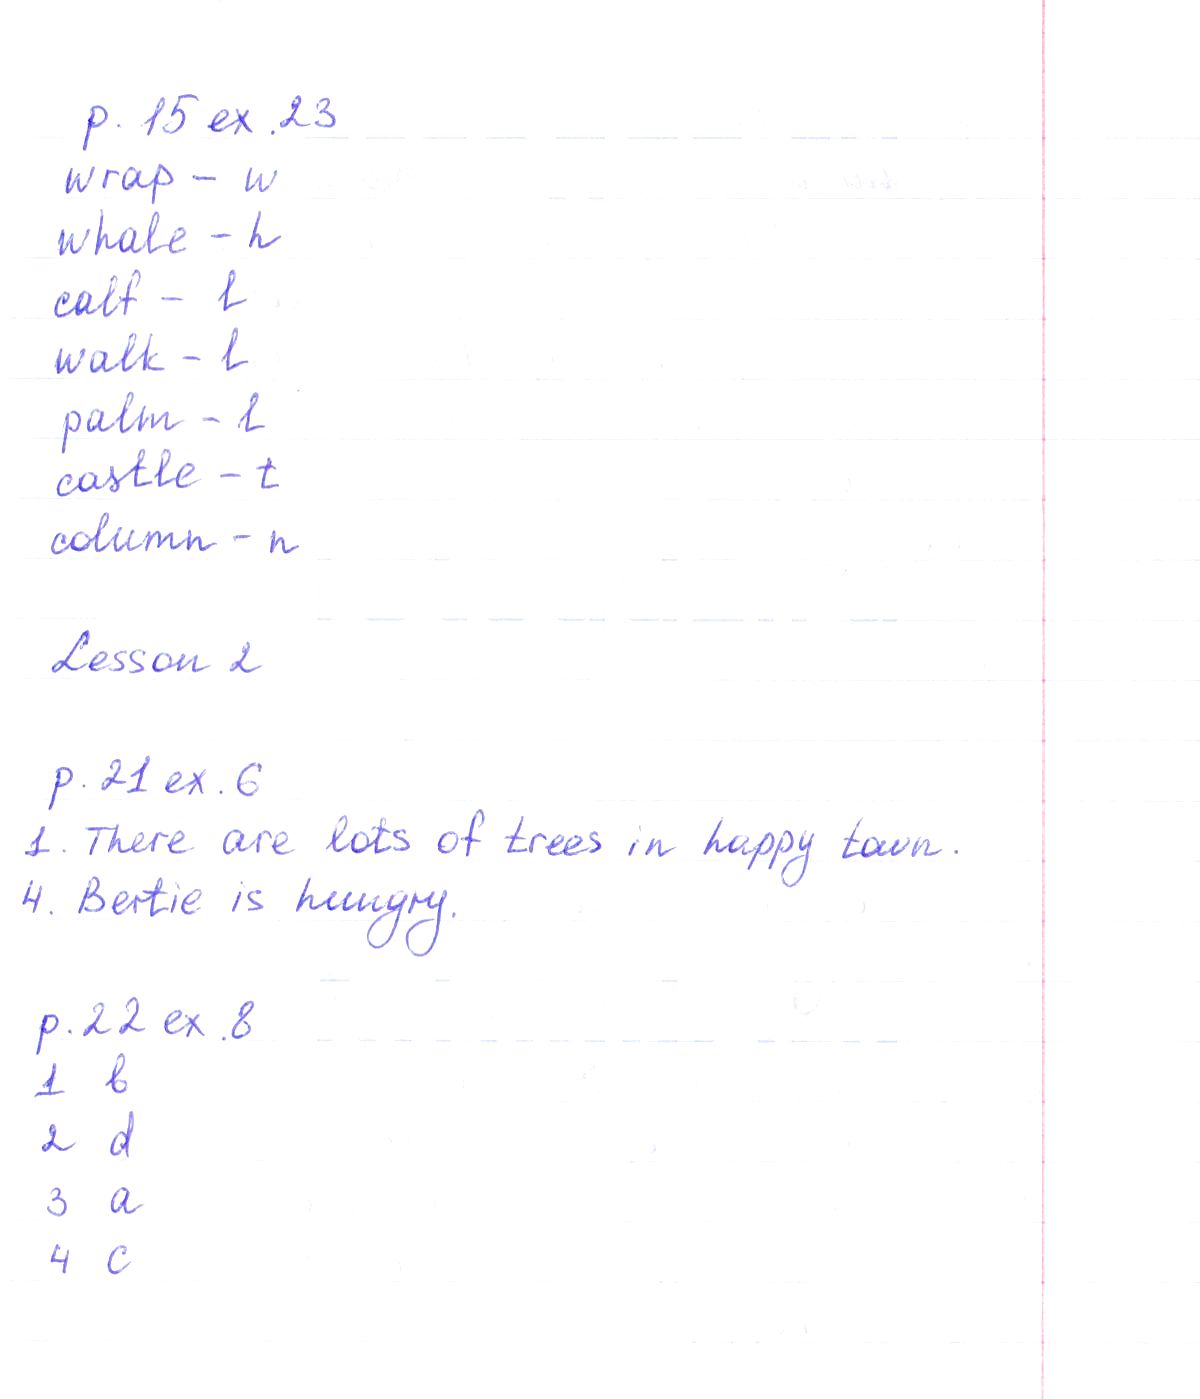 p. 15 ex. 23
wrap - w
whale - h
calf - l
walk - l
palm - l
castle - t
column - n
Lesson 2
p. 21 ex. 6
1. There are lots of trees in happy town.
4. Bertie is hungry.
p. 22 ex. 8
1 b
2 d
3 a
4 c